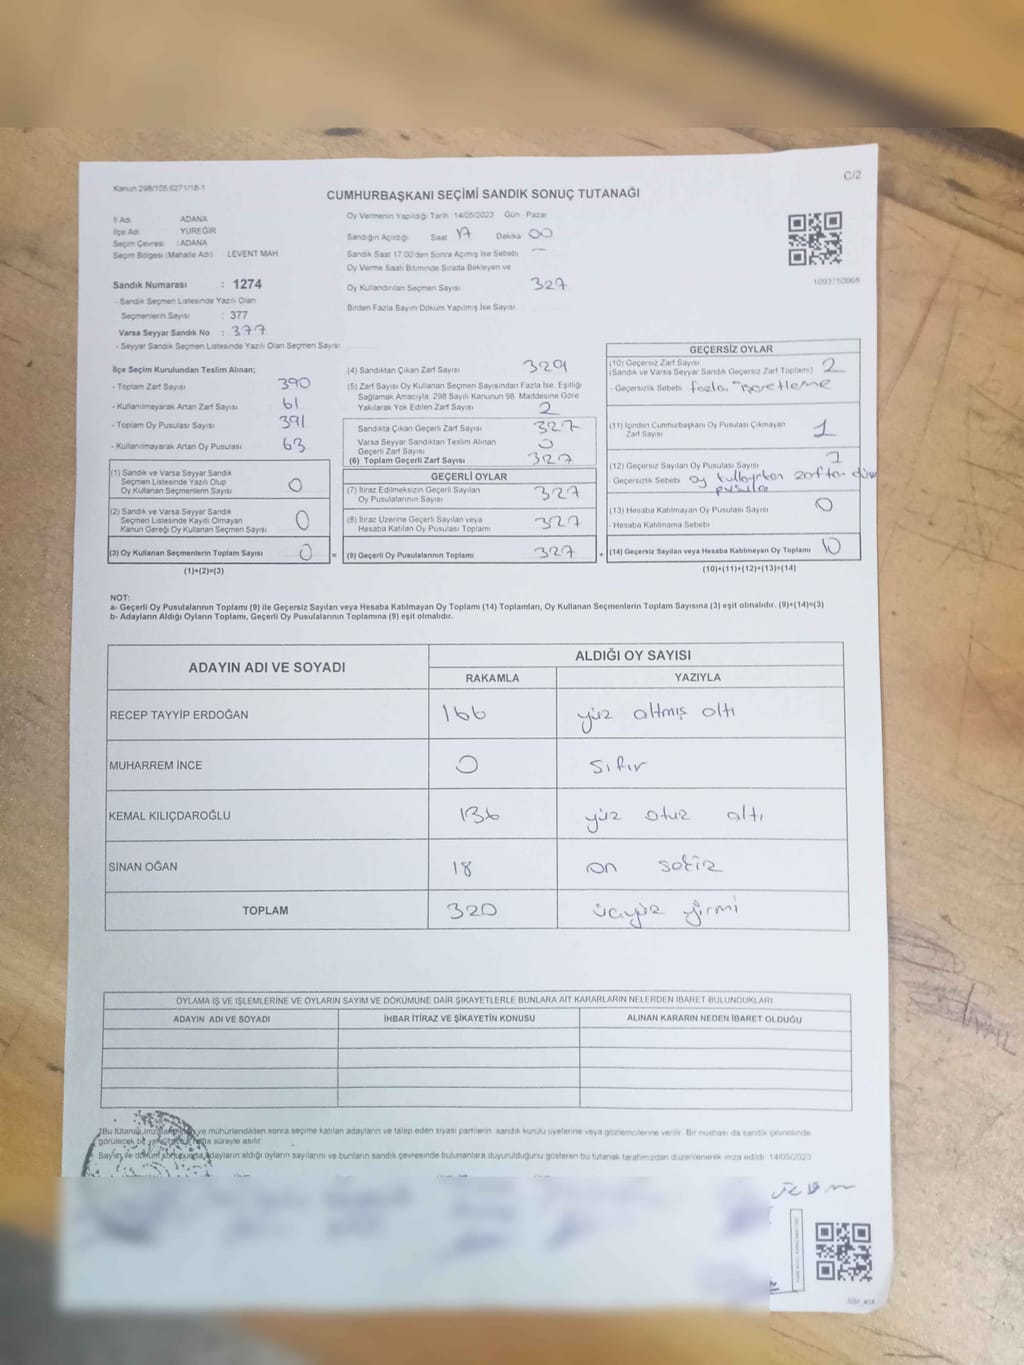 Kanun 298/105,6271/18-1
C/2
CUMHURBAŞKANI SEÇİMİ SANDIK SONUÇ TUTANAĞI
İl Adı ADANA
İlçe Adı YÜREĞİR
Seçim Çevresi : ADANA
Seçim Bölgesi (Mahalle Adı) LEVENT MAH
Sandık Numarası : 1274
- Sandık Seçmen Listesinde Yazılı Olan
Seçmenlerin Sayısı : 377
Varsa Seyyar Sandık No : 377
- Seyyar Sandık Seçmen Listesinde Yazılı Olan Seçmen Sayısı:
Oy Vermenin Yapıldığı Tarih 14/05/2023 Gün Pazar
Sandığın Açıldığı Saat 17 Dakika 00
Sandık Saat 17:00'den Sonra Açılmış İse Sebebi —
Oy Verme Saati Bitiminde Sırada Bekleyen ve
Oy Kullandırılan Seçmen Sayısı 327
Birden Fazla Sayım Döküm Yapılmış İse Sayısı
1093750968
İlçe Seçim Kurulundan Teslim Alınan;
- Toplam Zarf Sayısı 390
- Kullanılmayarak Artan Zarf Sayısı 61
- Toplam Oy Pusulası Sayısı 391
- Kullanılmayarak Artan Oy Pusulası 63
(1) Sandık ve Varsa Seyyar Sandık
Seçmen Listesinde Yazılı Olup
Oy Kullanan Seçmenlerin Sayısı 0
(2) Sandık ve Varsa Seyyar Sandık
Seçmen Listesinde Kayıtlı Olmayan
Kanun Gereği Oy Kullanan Seçmen Sayısı 0
(3) Oy Kullanan Seçmenlerin Toplam Sayısı 0 =
(1)+(2)=(3)
(4) Sandıktan Çıkan Zarf Sayısı 329
(5) Zarf Sayısı Oy Kullanan Seçmen Sayısından Fazla İse, Eşitliği
Sağlamak Amacıyla, 298 Sayılı Kanunun 98. Maddesine Göre
Yakılarak Yok Edilen Zarf Sayısı 2
Sandıkta Çıkan Geçerli Zarf Sayısı 327
Varsa Seyyar Sandıktan Teslim Alınan
Geçerli Zarf Sayısı 0
(6) Toplam Geçerli Zarf Sayısı 327
GEÇERLİ OYLAR
(7) İtiraz Edilmeksizin Geçerli Sayılan
Oy Pusulalarının Sayısı 327
(8) İtiraz Üzerine Geçerli Sayılan veya
Hesaba Katılan Oy Pusulası Toplamı 327
(9) Geçerli Oy Pusulalarının Toplamı 327 +
GEÇERSİZ OYLAR
(10) Geçersiz Zarf Sayısı 2
(Sandık ve Varsa Seyyar Sandık Geçersiz Zarf Toplamı)
- Geçersizlik Sebebi fazla işaretleme
(11) İçinden Cumhurbaşkanı Oy Pusulası Çıkmayan
Zarf Sayısı 1
(12) Geçersiz Sayılan Oy Pusulası Sayısı 7
- Geçersizlik Sebebi oy zarftan
pusula
(13) Hesaba Katılmayan Oy Pusulası Sayısı 0
- Hesaba Katılmama Sebebi
(14) Geçersiz Sayılan veya Hesaba Katılmayan Oy Toplamı 10
(10)+(11)+(12)+(13)=(14)
NOT:
a- Geçerli Oy Pusulalarının Toplamı (9) ile Geçersiz Sayılan veya Hesaba Katılmayan Oy Toplamı (14) Toplamları, Oy Kullanan Seçmenlerin Toplam Sayısına (3) eşit olmalıdır. (9)+(14)=(3)
b- Adayların Aldığı Oyların Toplamı, Geçerli Oy Pusulalarının Toplamına (9) eşit olmalıdır.
ADAYIN ADI VE SOYADI ALDIĞI OY SAYISI
RAKAMLA YAZIYLA
RECEP TAYYİP ERDOĞAN 166 yüz altmış altı
MUHARREM İNCE 0 sıfır
KEMAL KILIÇDAROĞLU 136 yüz otuz altı
SİNAN OĞAN 18 on sekiz
TOPLAM 320 üçyüz yirmi
OYLAMA İŞ VE İŞLEMLERİNE VE OYLARIN SAYIM VE DÖKÜMÜNE DAİR ŞİKAYETLERLE BUNLARA AİT KARARLARIN NELERDEN İBARET BULUNDUKLARI
ADAYIN ADI VE SOYADI İHBAR İTİRAZ VE ŞİKAYETİN KONUSU ALINAN KARARIN NEDEN İBARET OLDUĞU
"Bu tutanak ve mühürlendikten sonra seçime katılan adayların ve talep eden siyasi partilerin sandık kurulu üyelerine veya gözlemcilerine verilir. Bir nüshası da sandık çevresinde
görülecek bir süreyle asılır.
Sayım ve döküm sonucunda adayların aldığı oyların sayılarını ve bunların sandık çevresinde bulunanlara duyurulduğunu gösteren bu tutanak tarafımızdan düzenlenerek imza edildi. 14/05/2023